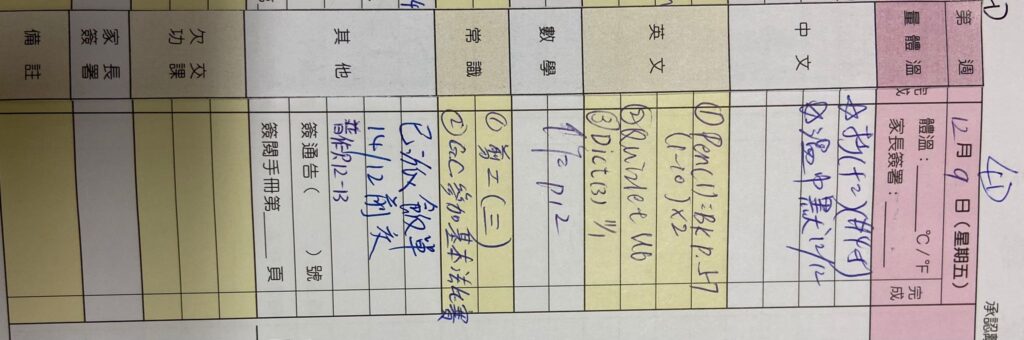 第 週
12月9日(星期五)
量體溫
體溫：______ °C/°F
家長簽署：______
完成
完成
中文
溫中默 12/12
英文
① Pen(1)=BK p.57
(1-10)×2
② Quizlet U6
③ Dict(3)
數學
p12
常識
① 剪工(三)
② GC 參加基本法比賽
其他
已派飯單
14/12前交
音作P.12-13
簽通告( )號
簽閱手冊第____頁
欠交功課
家長簽署
備註
承認